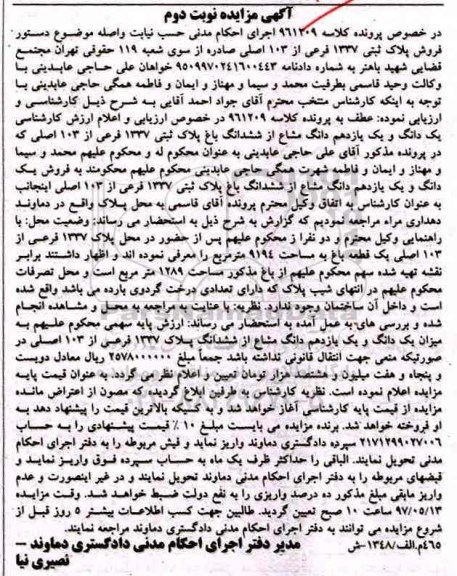 آگهی مزایده نوبت دوم
در خصوص پرونده کلاسه ۹۶۱۲۰۹ اجرای احکام مدنی حسب نیابت واصله موضوع دستور
فروش پلاک ثبتی ۱۳۳۷ فرعی از ۱۰۳ اصلی صادره از سوی شعبه ۱۱۹ حقوقی تهران مجتمع
قضایی شهید باهنر به شماره دادنامه ۹۵۰۹۹۷۰۲۴۱۶۰۰۴۴۳ خواهان علی حاجی عابدینی با
وکالت وحید قاسمی بطرفیت محمد و سیما و مهناز و ایمان و فاطمه همگی حاجی عابدینی با
توجه به اینکه کارشناس منتخب محترم آقای جواد احمد آقایی به شرح ذیل کارشناسی و
ارزیابی نموده: عطف به پرونده کلاسه ۹۶۱۲۰۹ در خصوص ارزیابی و اعلام ارزش کارشناسی
یک دانگ و یک یازدهم دانگ مشاع از ششدانگ باغ پلاک ثبتی ۱۳۳۷ فرعی از ۱۰۳ اصلی که
در پرونده مذکور آقای علی حاجی عابدینی به عنوان محکوم له و محکوم علیهم محمد و سیما
و مهناز و ایمان و فاطمه شهرت همگی حاجی عابدینی محکوم علیهم محکومند به فروش یک
دانگ و یک یازدهم دانگ مشاع از ششدانگ باغ پلاک ثبتی ۱۳۳۷ فرعی از ۱۰۳ اصلی اینجانب
به عنوان کارشناس به اتفاق وکیل محترم پرونده آقای قاسمی به محل پلاک واقع در دماوند
دهداری مراء مراجعه نمودیم که گزارش به شرح ذیل به استحضار می رساند: وضعیت محل: با
راهنمایی وکیل محترم و دو نفر از محکوم علیهم پس از حضور در محل پلاک ۱۳۳۷ فرعی از
۱۰۳ اصلی یک قطعه باغ به مساحت ۹۱۹۴ مترمربع را معرفی نموده اند و اظهار داشتند برابر
نقشه تهیه شده سهم محکوم علیهم از باغ مذکور مساحت ۱۲۸۹ متر مربع است و محل تصرفات
محکوم علیهم در انتهای شیب پلاک که دارای تعدادی درخت گردوی بارده می باشد واقع شده
است و داخل آن ساختمان وجود ندارد. نظریه: با عنایت به مراجعه به محل و مشاهده انجام
شده و بررسی های به عمل آمده به استحضار می رساند: ارزش پایه سهمی محکوم علیهم به
میزان یک دانگ و یک یازدهم دانگ مشاع از ششدانگ پلاک ۱۳۳۷ فرعی از ۱۰۳ اصلی در
صورتیکه منعی جهت انتقال قانونی نداشته باشد جمعاً مبلغ ۲۵۷۸۰۰۰۰۰۰ ریال معادل دویست
و پنجاه و هفت میلیون و هشتصد هزار تومان تعیین و اعلام نظر می گردد. به عنوان قیمت پایه
مزایده اعلام نموده است. نظریه کارشناس به طرفین ابلاغ گردیده که مصون از اعتراض مانده
مزایده از قیمت پایه کارشناسی آغاز خواهد شد و به کسیکه بالاترین قیمت را پیشنهاد دهد به
او فروخته خواهد شد. برنده مزایده می بایست مبلغ ۱۰ ٪ قیمت پیشنهادی را به حساب
۲۱۷۱۲۹۹۰۲۷۰۰۶ سپرده دادگستری دماوند واریز نماید و فیش مربوطه را به دفتر اجرای احکام
مدنی تحویل نمایند. الباقی را حداکثر ظرف یک ماه به حساب سپرده فوق واریز نمایند و
قبضهای مربوطه را به دفتر اجرای احکام مدنی دماوند تحویل نمایند و در غیر اینصورت و عدم
واریز مابقی مبلغ مذکور ده درصد واریزی را به نفع دولت ضبط خواهد شد. وقت مزایده
۹۷/۰۵/۱۳ ساعت ۱۰ صبح تعیین گردید. طالبین جهت کسب اطلاعات بیشتر ۵ روز قبل از
شروع مزایده می توانند به دفتر اجرای احکام مدنی دادگستری دماوند مراجعه نمایند.
۴۶۵م.الف/۱۳۴۸-ش مدیر دفتر اجرای احکام مدنی دادگستری دماوند –
نصیری نیا